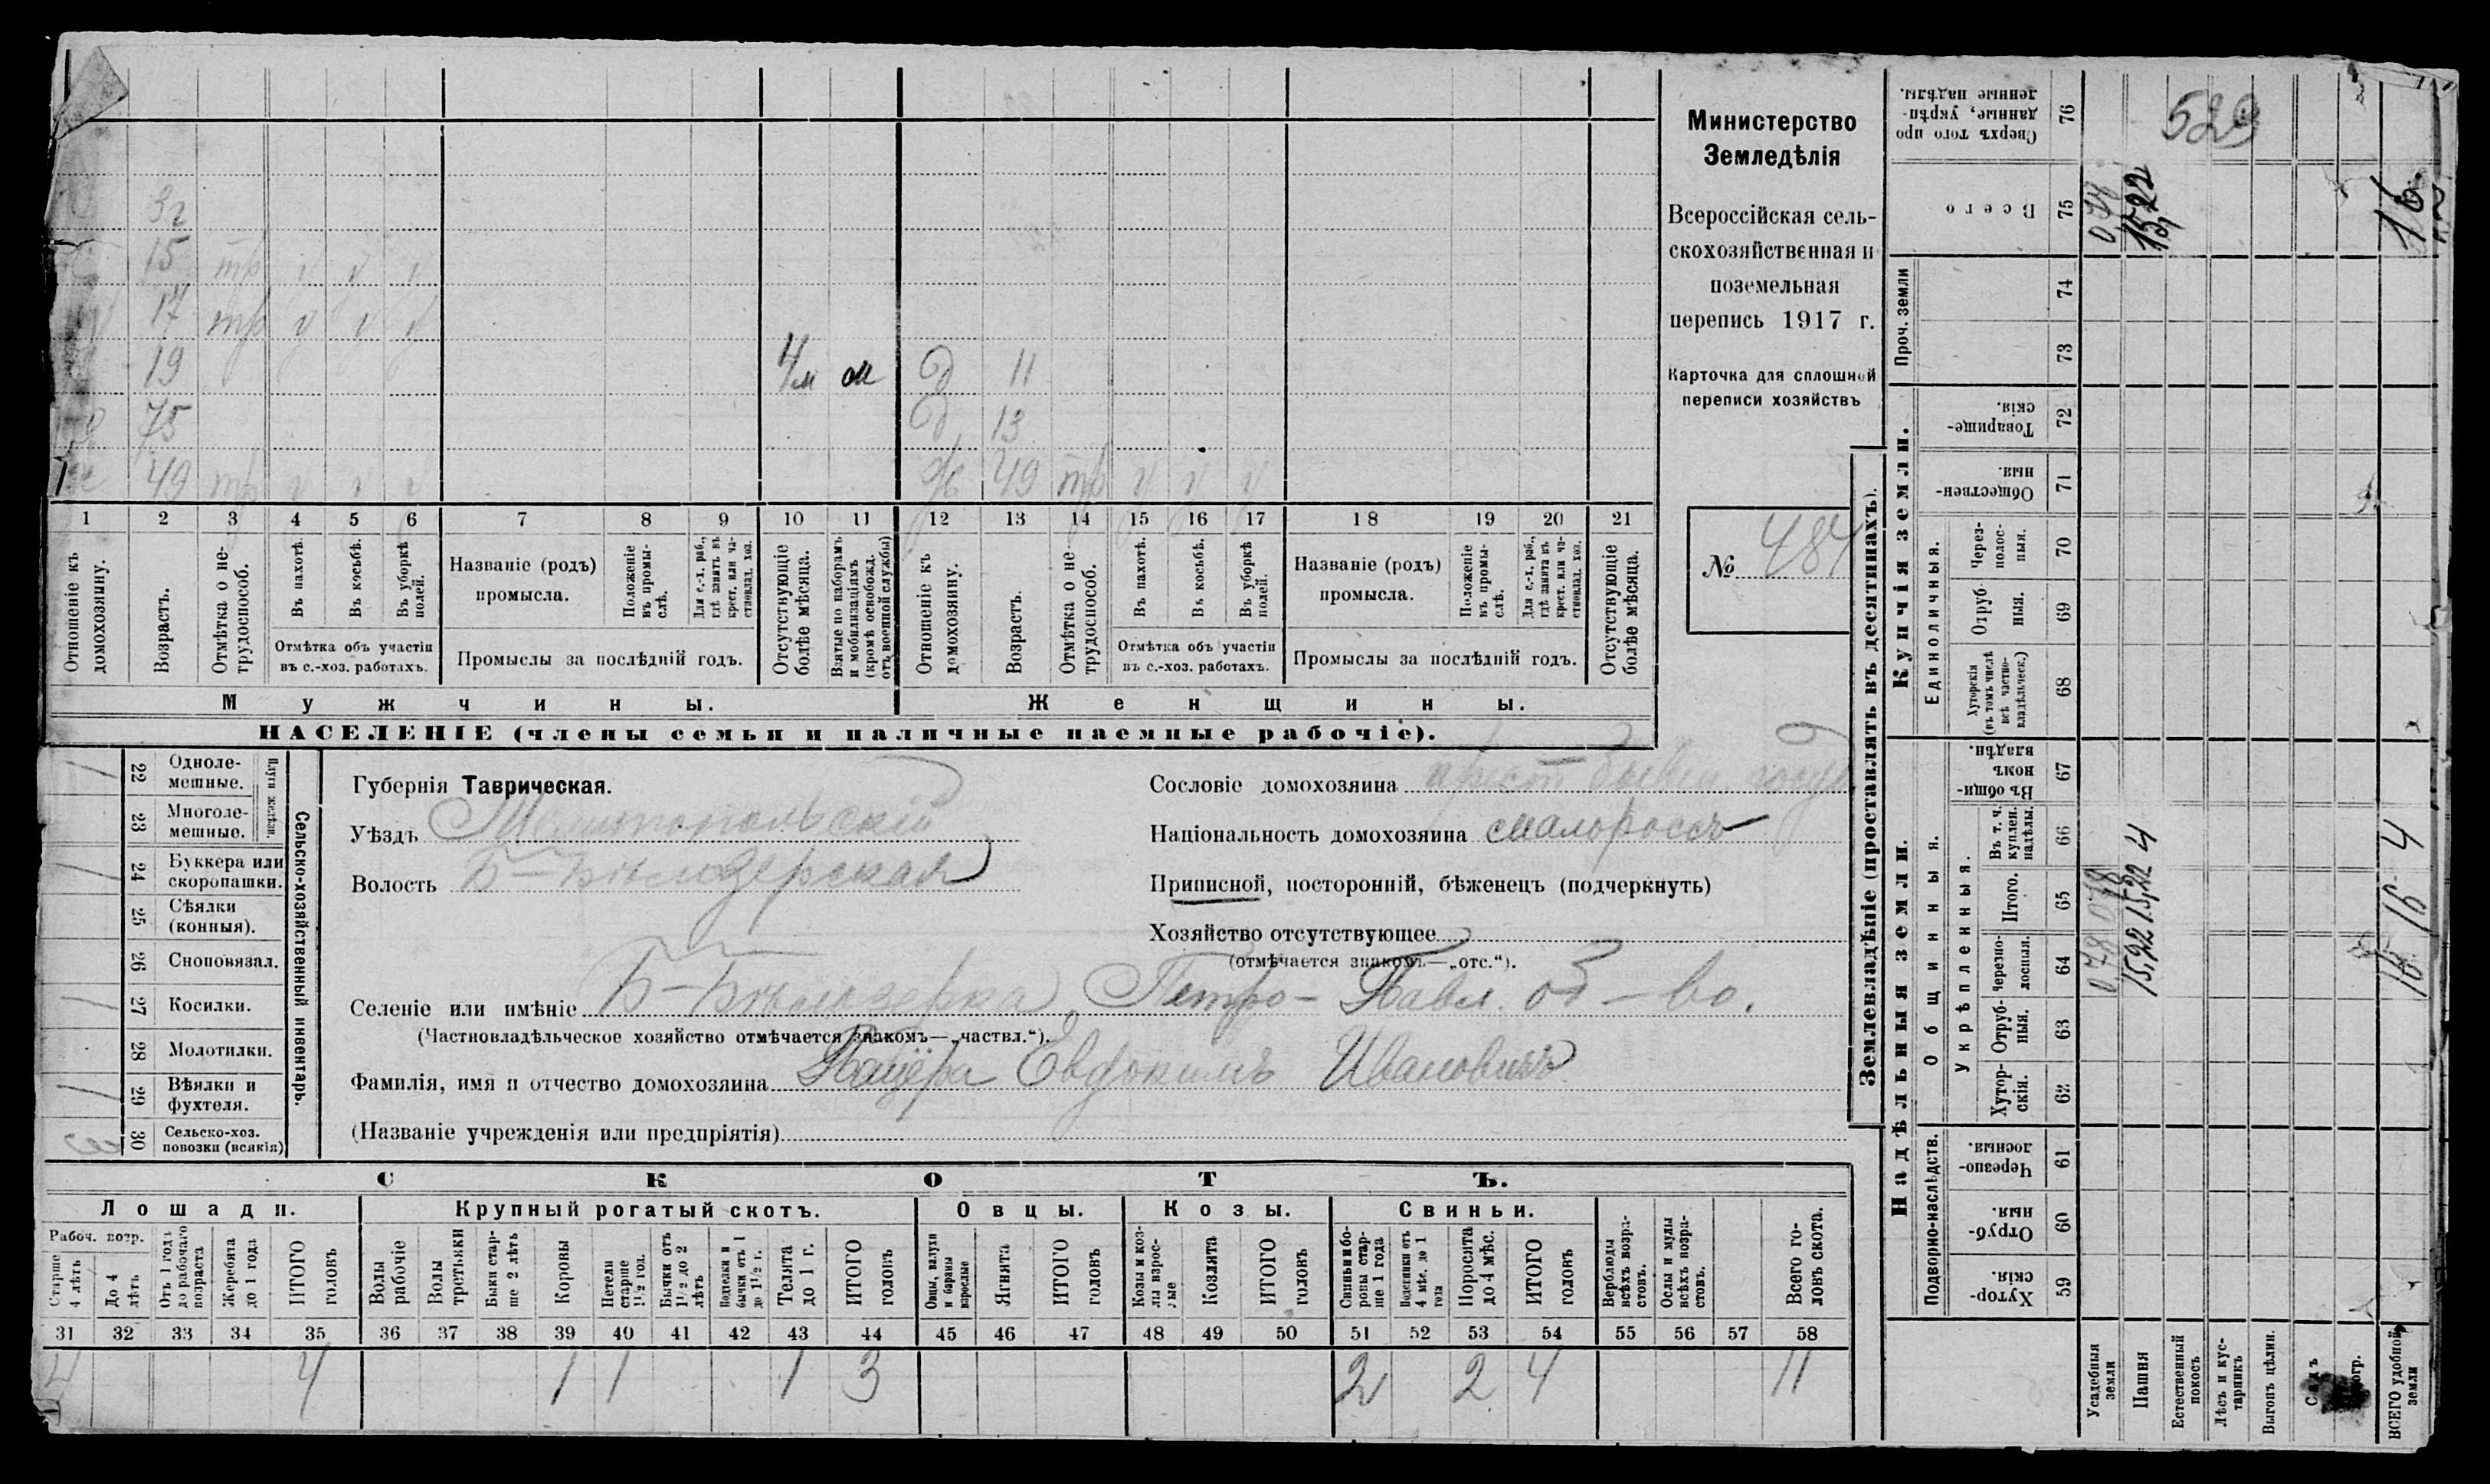 Министерство
Земледѣлія
Всероссійская сель-
скохозяйственная и
поземельная
перепись 1917 г.
Карточка для сплошной
переписи хозяйствъ
№ 484
3г
15 тр v v v
17 тр v v v
19 4м м д 11
75 д 13
49 тр v v v ж 49 тр v v v
1 2 3 4 5 6 7 8 9 10 11 12 13 14 15 16 17 18 19 20 21
Отношеніе къ домохозяину.
Возрастъ.
Отмѣтка о не-трудоспособ.
Въ пахотѣ.
Въ косьбѣ.
Въ уборкѣ полей.
Отмѣтка объ участіи
въ с.-хоз. работахъ.
Названіе (родъ)
промысла.
Положеніе въ промы-слѣ.
Для с.-х. раб., гдѣ занятъ въ крест. или ча-стновлад. хоз.
Промыслы за послѣдній годъ.
Отсутствующіе болѣе мѣсяца.
Взятые по наборамъ и мобилизаціямъ (кромѣ освобожд. отъ военной службы)
Отношеніе къ домохозяину.
Возрастъ.
Отмѣтка о не-трудоспособ.
Въ пахотѣ.
Въ косьбѣ.
Въ уборкѣ полей.
Отмѣтка объ участіи
въ с.-хоз. работахъ.
Названіе (родъ)
промысла.
Положеніе въ промы-слѣ.
Для с.-х. раб., гдѣ занята въ крест. или ча-стновлад. хоз.
Промыслы за послѣдній годъ.
Отсутствующіе болѣе мѣсяца.
Мужчины.
Женщины.
НАСЕЛЕНІЕ (члены семьи и наличные наемные рабочіе).
Сельско-хозяйственный инвентарь.
Плуги желѣзн.
/ 22 Одноле-мешные.
23 Многоле-мешные.
/ 24 Буккера или скоропашки.
25 Сѣялки (конныя).
26 Сноповязал.
/ 27 Косилки.
28 Молотилки.
/ 29 Вѣялки и фухтеля.
30 Сельско-хоз. повозки (всякія)
Губернія Таврическая.
Уѣздъ Мелитопольскій
Волость Б-Бѣлозерская
Сословіе домохозяина крест бывш. госуд
Національность домохозяина малороссъ
Приписной, посторонній, бѣженецъ (подчеркнуть)
Хозяйство отсутствующее
(отмѣчается знакомъ—„отс.“).
Селеніе или имѣніе Б-Бѣлозерка Петро-Павл. об-во.
(Частновладѣльческое хозяйство отмѣчается знакомъ—„частвл.“).
Фамилія, имя и отчество домохозяина Пацёра Евдокимъ Ивановичъ
(Названіе учрежденія или предпріятія)
СКОТЪ.
Лошади. Крупный рогатый скотъ. Овцы. Козы. Свиньи.
Рабоч. возр.
Старше 4 лѣтъ
До 4 лѣтъ
Отъ 1 года до рабочаго возраста
Жеребята до 1 года
ИТОГО головъ
Волы рабочіе
Волы третьяки
Быки стар-ше 2 лѣтъ
Коровы
Нетели старше 1½ год.
Бычки отъ 1½ до 2 лѣтъ
Подтелки и бычки отъ 1 до 1½ г.
Телята до 1 г.
ИТОГО головъ
Овцы, валухи и бараны взрослые
Ягнята
ИТОГО головъ
Козы и коз-лы взрос-лые
Козлята
ИТОГО головъ
Свиньи и бо-ровы стар-ше 1 года
Подсвинки отъ 4 мѣс. до 1 года
Поросята до 4 мѣс.
ИТОГО головъ
Верблюды всѣхъ возра-стовъ.
Ослы и мулы всѣхъ возра-стовъ.
Всего го-ловъ скота.
31 32 33 34 35 36 37 38 39 40 41 42 43 44 45 46 47 48 49 50 51 52 53 54 55 56 57 58
4 4 1 1 1 3 2 2 4 11
Землевладѣніе (проставлять въ десятинахъ).
Надѣльныя земли.
Купчія земли.
Проч. земли
Подворно-наслѣдств.
Общинныя.
Укрѣпленныя.
Единоличныя.
Хутор-скія. 59
Отруб-ныя. 60
Черезпо-лосныя. 61
Хутор-скія. 62
Отруб-ныя. 63
Черезпо-лосныя. 64
Итого. 65
Въ т. ч. куплен. надѣлы. 66
Въ общин-номъ владѣн. 67
Хуторскія (въ томъ числѣ всѣ частно-владѣльческ.) 68
Отруб-ныя. 69
Через-полос-ныя. 70
Обществен-ныя. 71
Товарище-скія. 72
73
74
Всего 75
Сверхъ того про-данные, укрѣп-ленные надѣлы. 76
529
Усадебныя земли 078 078 078
Пашня 15,22 15,22 4 15,22
Естественный покосъ
Лѣсъ и кус-тарникъ
Выгонъ цѣлин.
Садъ
ВСЕГО удобной земли 16 16 4 16